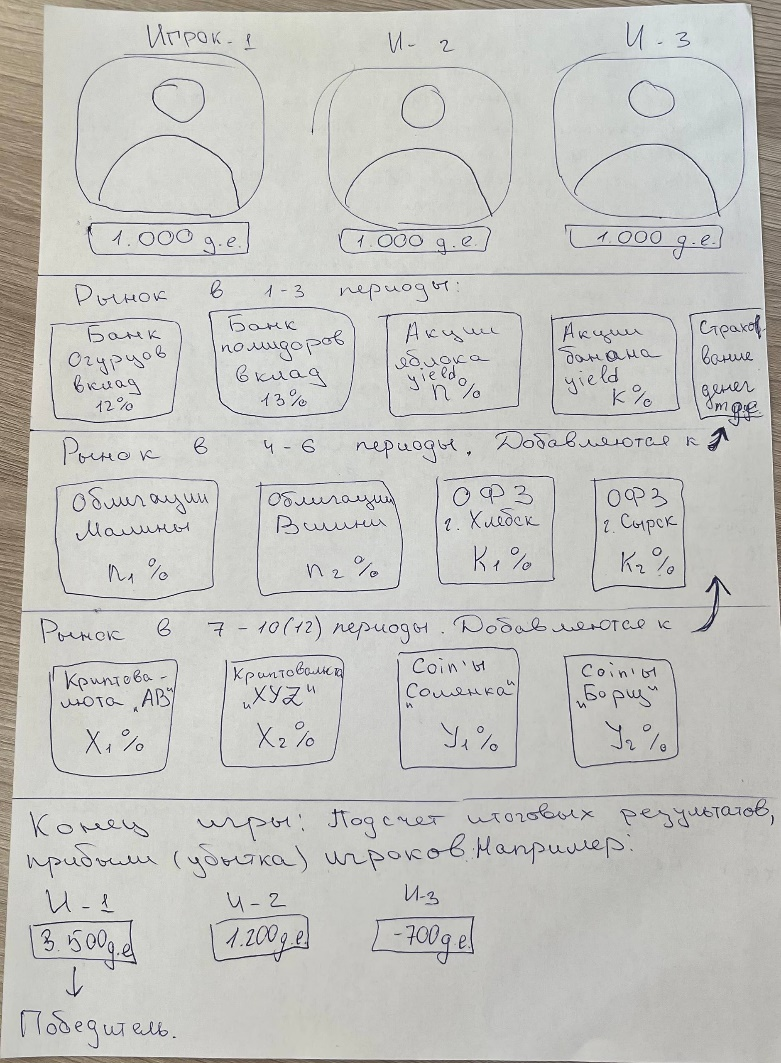 Игрок-1 И-2 И-3
1.000 д.е. 1.000 д.е. 1.000 д.е.
Рынок в 1-3 периоды:
Банк
Огурцов
вклад
12%
Банк
помидоров
вклад
13%
Акции
яблока
yield
n%
Акции
банана
yield
K%
Страхо
вание
денег
Рынок в 4-6 периоды. Добавляются к
Облигации
Малины
n₁%
Облигации
Вишни
n₂%
ОФЗ
г. Хлебск
K₁%
ОФЗ
г. Сырск
K₂%
Рынок в 7-10(12) периоды. Добавляются к
Криптова-
люта „АВ"
X₁%
Криптовалюта
„XYZ"
X₂%
Coin'ы
"Солянка"
У₁%
Coin'ы
„Борщ"
У₂%
Конец игры: Подсчет итоговых результатов,
прибыли (убытка) игроков. Например:
И-1 И-2 И-3
3.500д.е 1.200д.е. -700д.е.
Победитель.